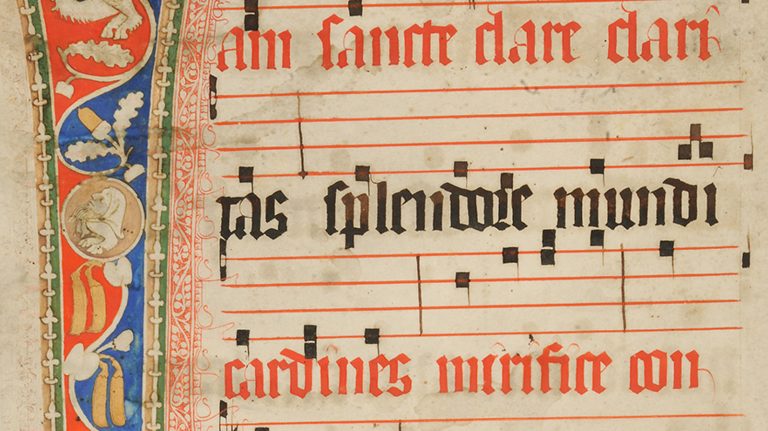 am sancte clare clari
tas splendore mundi
cardines mirifice con